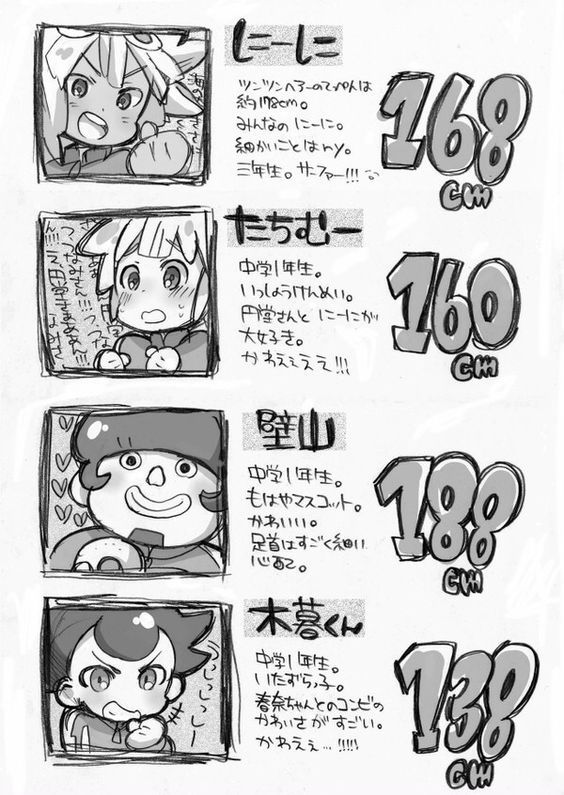 にーに
ツンツンヘアーのてっぺんは
約178cm。
みんなのにーに。
細かいことはry。
三年生。サーファー!!!
168
cm
たちむー
中学1年生。
いっしょうけんめい。
円堂さんとにーにが
大好き。
かわええええ!!!
160
cm
壁山
中学1年生。
もはやマスコット。
かわいい。
足首はすごく細い
心配で。
188
cm
木暮くん
中学1年生。
いたずらっ子。
春奈ちゃんとのコンビの
かわいさがすごい。
かわええ…!!!!!
うっしっしっしー
138
cm